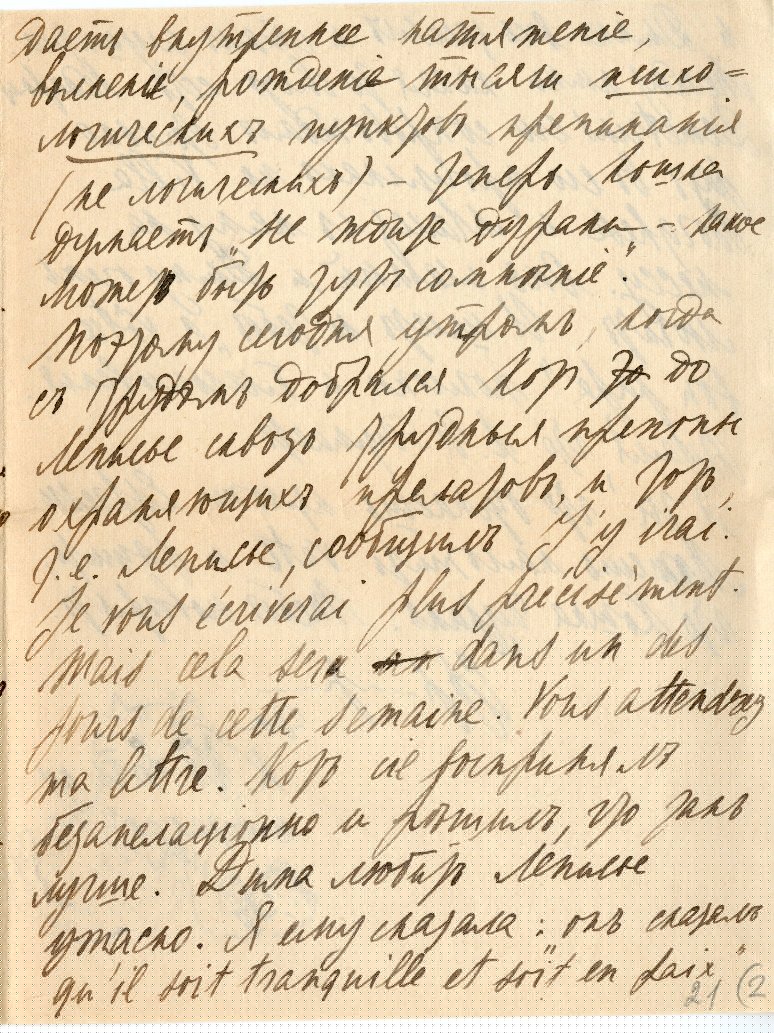 даетъ внутреннее натяженіе,
волненіе, рожденіе тысячи психо=
логическихъ пунктовъ препинанія
(не логическихъ) – теперь Кошка
думаетъ „Не ждите дурани – какое
можетъ быть тутъ сомнѣніе".
Поэтому сегодня утромъ, когда
съ трудомъ добрался Кот до
Леписье сквозь трудныя препоны
охраняющихъ прелатовъ, и тотъ,
т.е. Леписье, сообщилъ J'y irai.
Je vous écriverai plus précisément.
Mais cela sera dans un des
jours de cette semaine. Vous attendrez
ma lettre. Котъ се воспринялъ
безапелаціонно и рѣшилъ, что такъ
лучше. Дима любитъ Леписье
ужасно. Я ему сказала: онъ сказалъ
qu'il soit tranquille et soït en paix"
21 (2